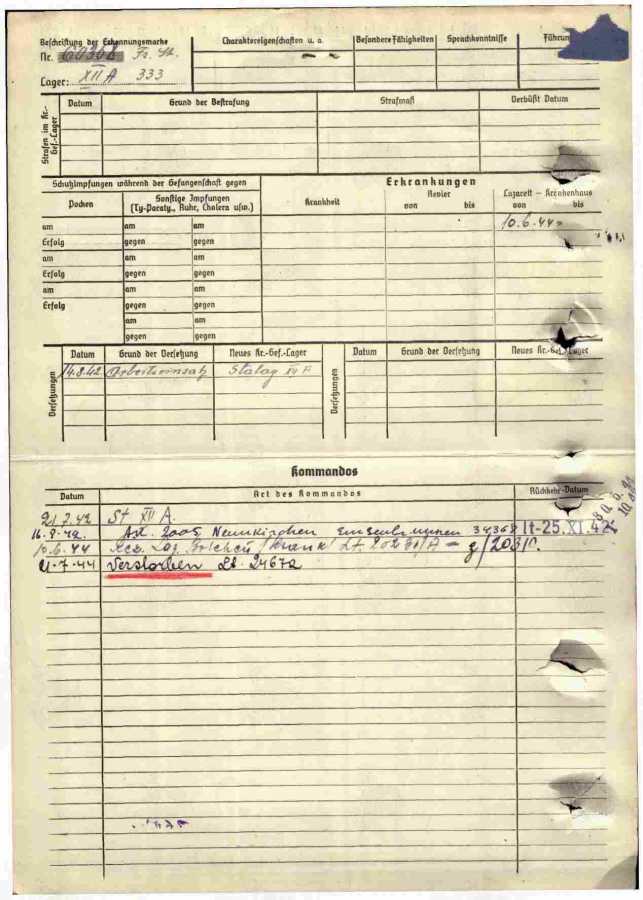 Beschriftung der Erkennungsmarke
Nr.
Lager: XII A 333
Charaktereigenschaften u. a.
Besondere Fähigkeiten
Sprachkenntnisse
Führung
Strafen im Kr.-Gef.-Lager
Datum
Grund der Bestrafung
Strafmaß
Verbüßt Datum
Schutzimpfungen während der Gefangenschaft gegen
Erkrankungen
Pocken
Sonstige Impfungen
(Ty-Paraty., Ruhr, Cholera usw.)
Krankheit
Revier
von bis
Lazarett – Krankenhaus
von bis
am am am
10.6.44
Erfolg gegen gegen
am am am
Erfolg gegen gegen
am am am
Erfolg gegen gegen
am am
gegen gegen
Versetzungen
Datum Grund der Versetzung Neues Kr.-Gef.-Lager
14.8.42 Arbeitseinsatz Stalag XII F
Versetzungen
Datum Grund der Versetzung Neues Kr.-Gef.-Lager
Kommandos
Datum Art des Kommandos Rückkehr-Datum
21.7.42 St. XII A.
16.8.42. 2005 Neunkirchen 34368 lt-25.XI.42
10.6.44 Lag. Bolchen /krank/
21.7.44 Verstorben 2467a